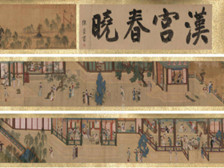 漢宮春曉